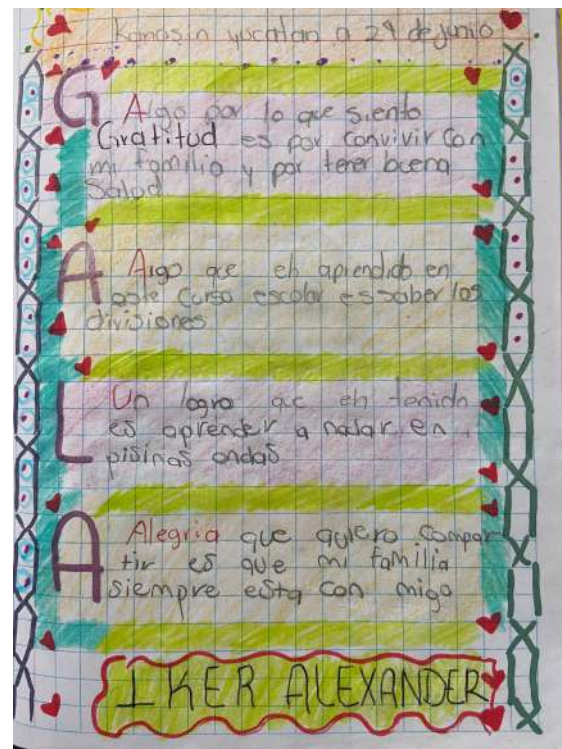 Kanasin yucatan a 29 de junio
G Algo por lo que siento
Gratitud es por convivir con
mi familia y por tener buena
Salud
A Algo que eh aprendido en
este curso escolar es saber las
divisiones
L Un logro que eh tenido
es aprender a nadar en
pisinas ondas
A Alegria que quiero compar
tir es que mi familia
siempre esta con migo
IKER ALEXANDER